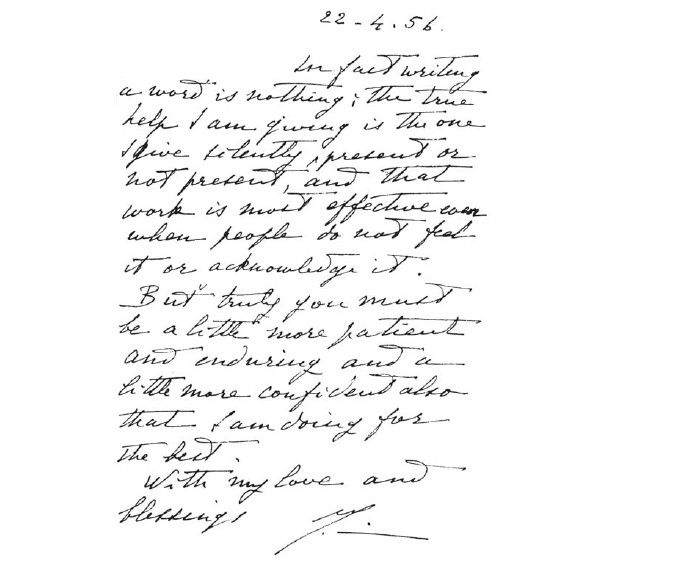 22-4.56.
In fact writing
a word is nothing; the true
help I am giving is the one
I give silently, present or
not present, and that
work is most effective even
when people do not feel
it or acknowledge it.
But truly you must
be a little more patient
and enduring and a
little more confident also
that I am doing for
the best.
With my love and
blessings